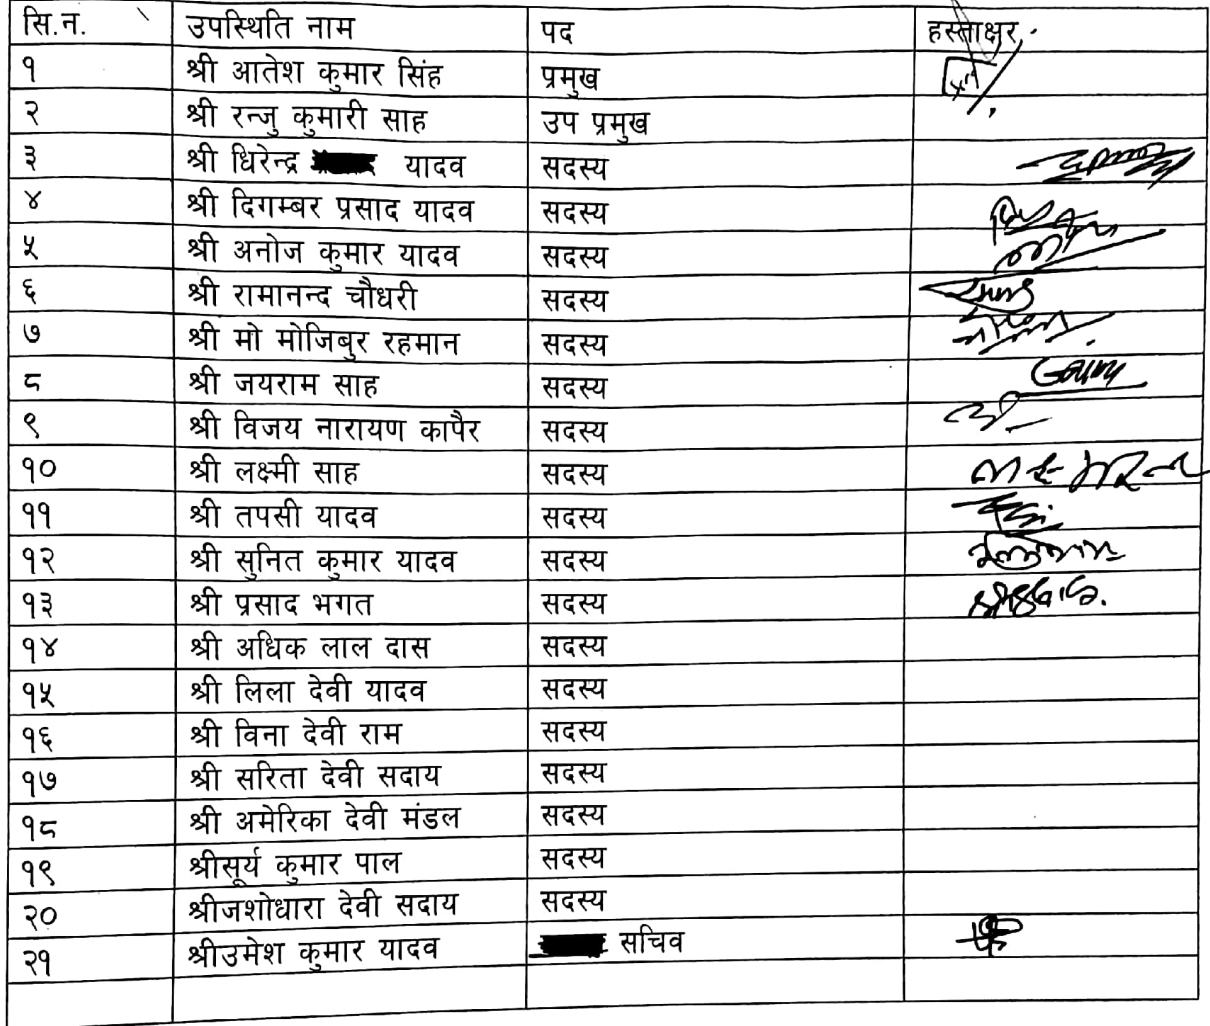 सि.न. उपस्थिति नाम पद हस्ताक्षर
१ श्री आतेश कुमार सिंह प्रमुख
२ श्री रन्जु कुमारी साह उप प्रमुख
३ श्री धिरेन्द्र यादव सदस्य
४ श्री दिगम्बर प्रसाद यादव सदस्य
५ श्री अनोज कुमार यादव सदस्य
६ श्री रामानन्द चौधरी सदस्य
७ श्री मो मोजिबुर रहमान सदस्य
८ श्री जयराम साह सदस्य
९ श्री विजय नारायण कापैर सदस्य
१० श्री लक्ष्मी साह सदस्य
११ श्री तपसी यादव सदस्य
१२ श्री सुनित कुमार यादव सदस्य
१३ श्री प्रसाद भगत सदस्य
१४ श्री अधिक लाल दास सदस्य
१५ श्री लिला देवी यादव सदस्य
१६ श्री विना देवी राम सदस्य
१७ श्री सरिता देवी सदाय सदस्य
१८ श्री अमेरिका देवी मंडल सदस्य
१९ श्रीसूर्य कुमार पाल सदस्य
२० श्रीजशोधारा देवी सदाय सदस्य
२१ श्रीउमेश कुमार यादव सचिव